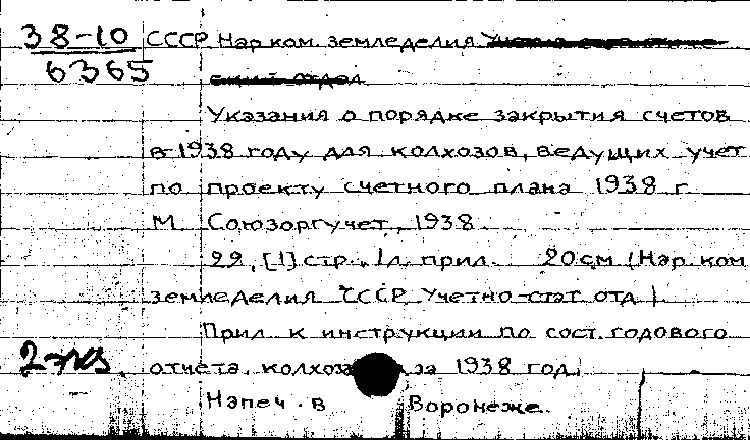 38-10
6365
СССР. Нар.ком. земледелия
Указания о порядке закрытия счетов
в 1938 году для колхозов, ведущих учет
по проекту счетного плана 1938 г.
М. Союзоргучет, 1938.
22, [1] стр., 1 л. прил. 20 см. (Нар. ком
земледелия СССР. Учетно-стат. отд.)
Прил. к инструкции по сост. годового
2 экз. отчета за 1938 год.
Напеч. в Воронеже.